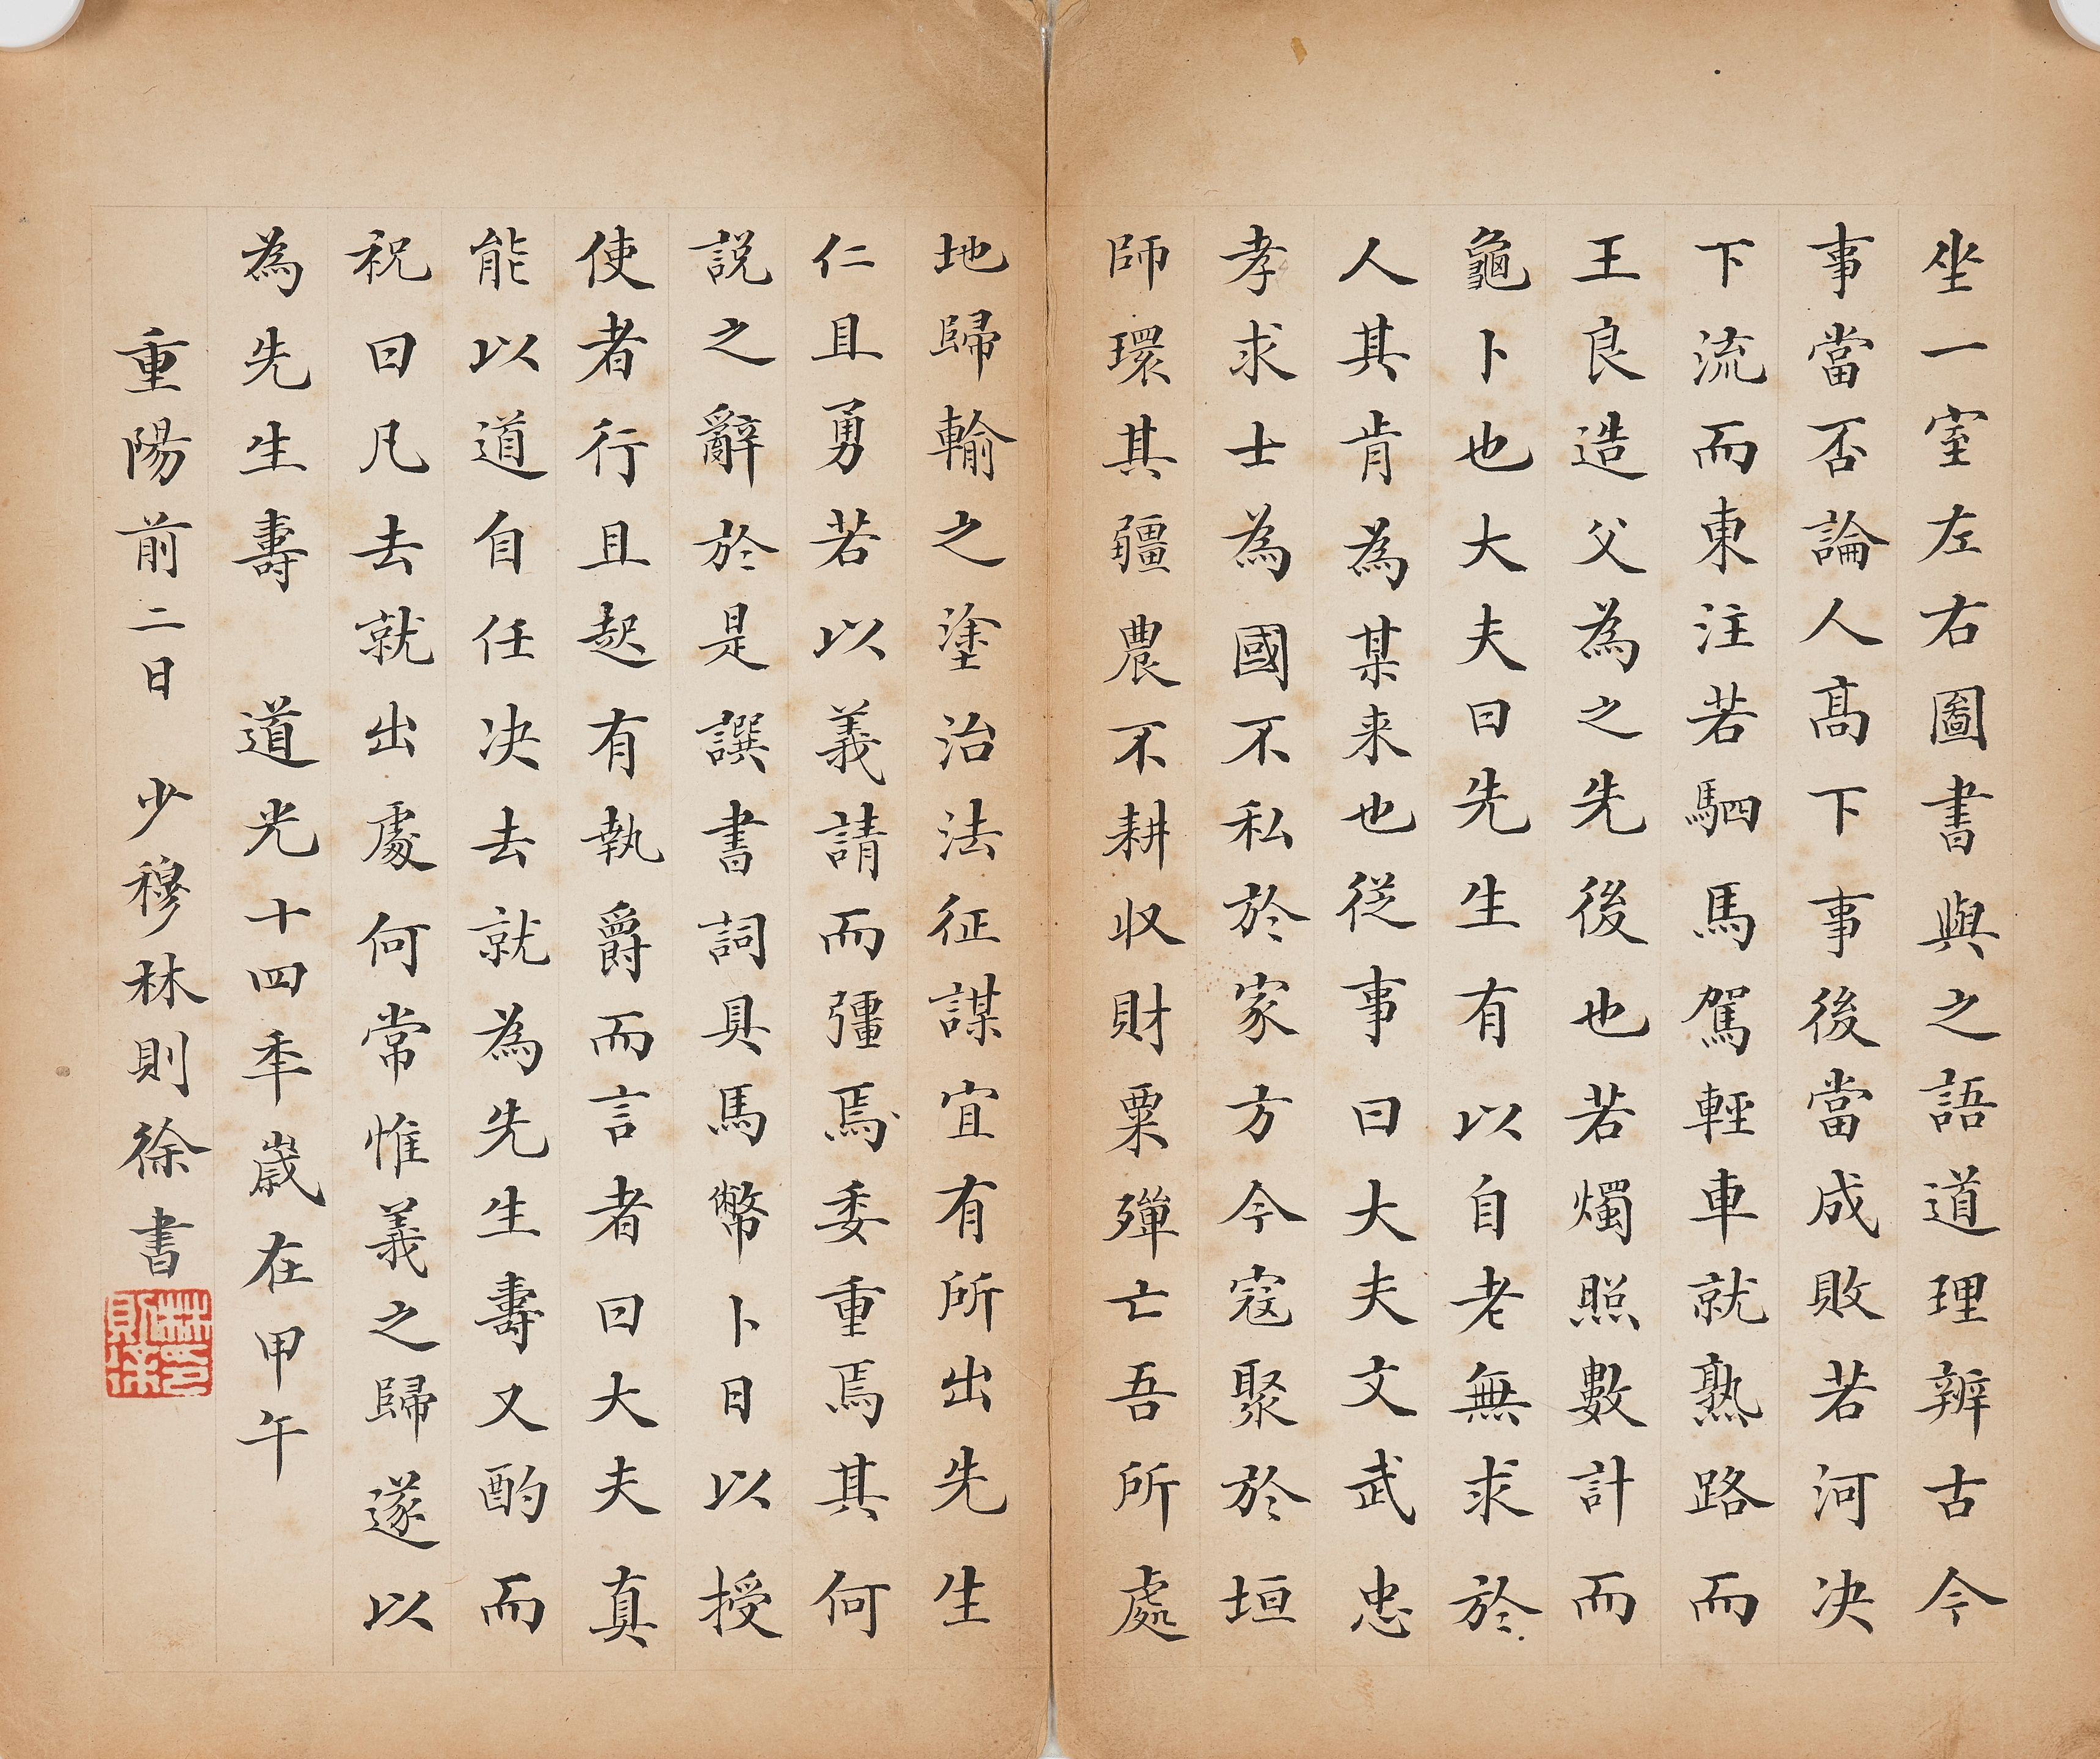 坐一室左右圖書與之語道理辨古今
事當否論人高下事後當成敗若河决
下流而東注若駟馬駕輕車就熟路而
王良造父為之先後也若燭照數計而
龜卜也大夫曰先生有以自老無求於
人其肯為某来也從事曰大夫文武忠
孝求士為國不私於家方今寇聚於垣
師環其疆農不耕収財粟殫亡吾所處
地歸輸之塗治法征謀宜有所出先生
仁且勇若以義請而彊焉委重焉其何
說之辭於是譔書詞具馬幣卜日以授
使者行且起有執爵而言者曰大夫真
能以道自任决去就為先生壽又酌而
祝曰凡去就出處何常惟義之歸遂以
為先生壽 道光十四年歲在甲午
重陽前二日 少穆林則徐書
林則徐印